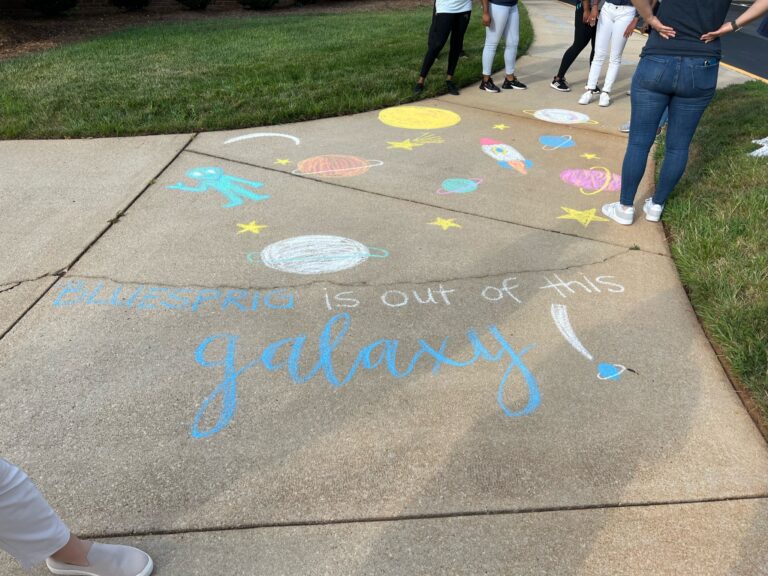 BLUESPRIG is out of this
galaxy!